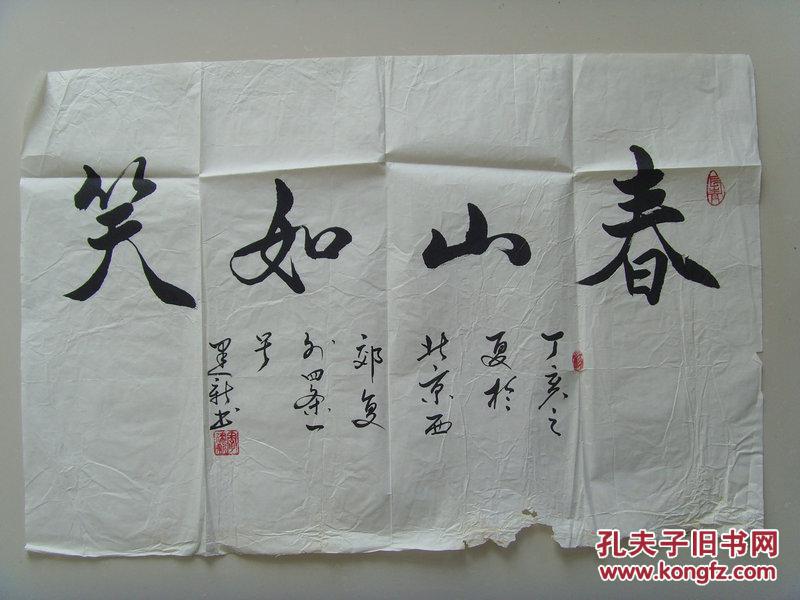 春山如笑
丁亥之
夏於
北京西
郊复
外四条一
号
新书
孔夫子旧书网
www.kongfz.com